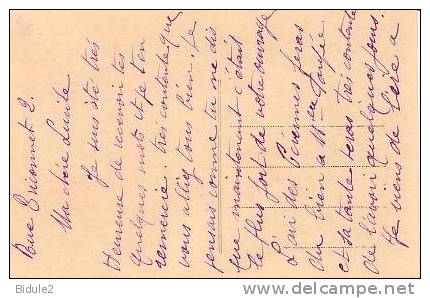 Rue Briconnet 2.
Ma chère Lucile
Je suis été très
Heureuse de recevoir tes
quelques mots et je t'en
remercie. très contente que
vous alliez tous bien. Je
pensais comme tu me dis
que maintenant c'était
le plus fort de votre ouvrage
L'air des Cévennes feras
du bien à Mr
et ta tante seras très contente
de l'avoir quelques jours.
Je viens de à
Bidule2
delcampe.net